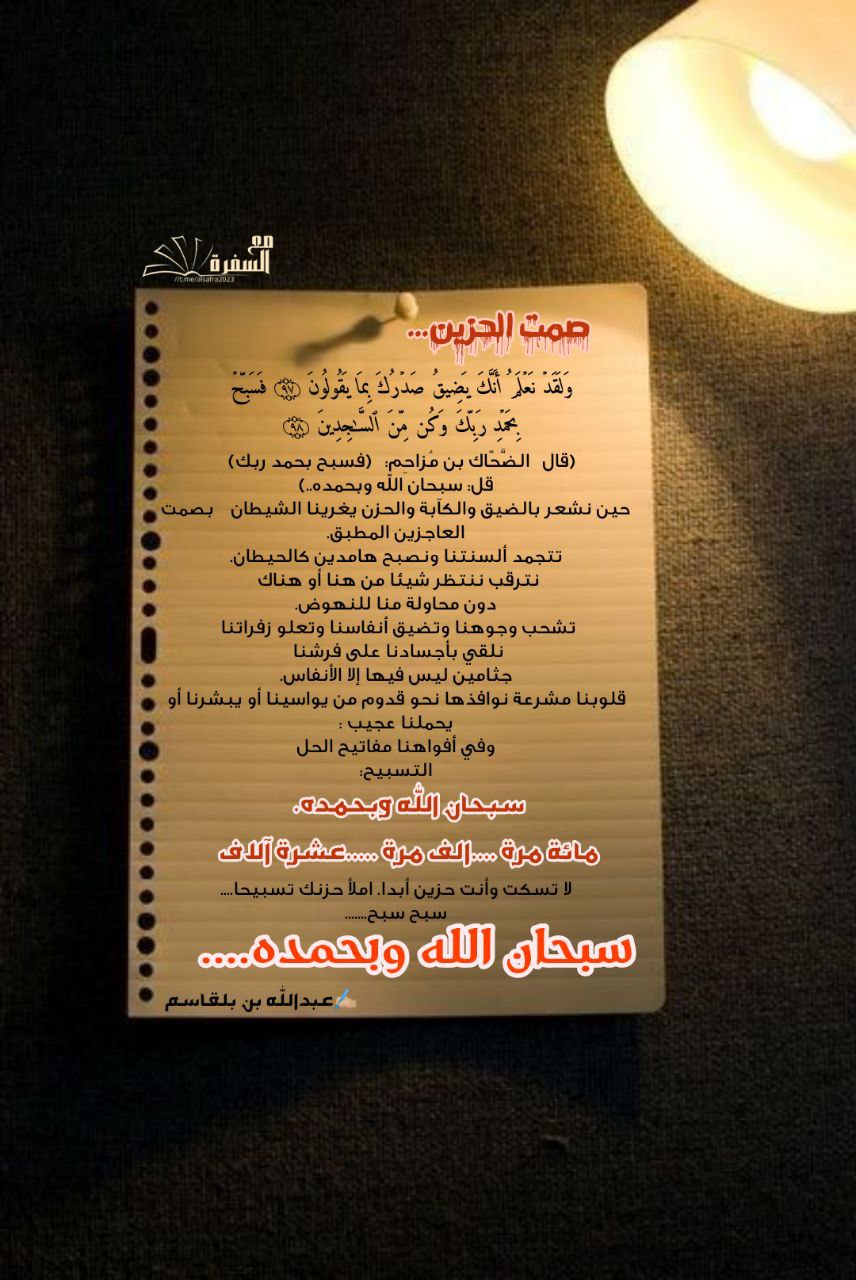 مع
السفرة
//t.me/alsafra2023
صمت الحزين...
وَلَقَدْ نَعْلَمُ أَنَّكَ يَضِيقُ صَدْرُكَ بِمَا يَقُولُونَ ۝٩٧ فَسَبِّحْ
بِحَمْدِ رَبِّكَ وَكُن مِّنَ ٱلسَّٰجِدِينَ ۝٩٨
(قال الضَّحّاك بن مُزاحِم: (فسبح بحمد ربك)
قل: سبحان الله وبحمده..)
حين نشعر بالضيق والكآبة والحزن يغرينا الشيطان بصمت
العاجزين المطبق.
تتجمد ألسنتنا ونصبح هامدين كالحيطان.
نترقب ننتظر شيئا من هنا أو هناك
دون محاولة منا للنهوض.
تشحب وجوهنا وتضيق أنفاسنا وتعلو زفراتنا
نلقي بأجسادنا على فرشنا
جثامين ليس فيها إلا الأنفاس.
قلوبنا مشرعة نوافذها نحو قدوم من يواسينا أو يبشرنا أو
يحملنا عجيب :
وفي أفواهنا مفاتيح الحل
التسبيح:
سبحان الله وبحمده.
مائة مرة ....الف مرة .....عشرة آلاف
لا تسكت وأنت حزين أبدا. املأ حزنك تسبيحا....
سبح سبح.......
سبحان الله وبحمده....
✍🏻عبدالله بن بلقاسم